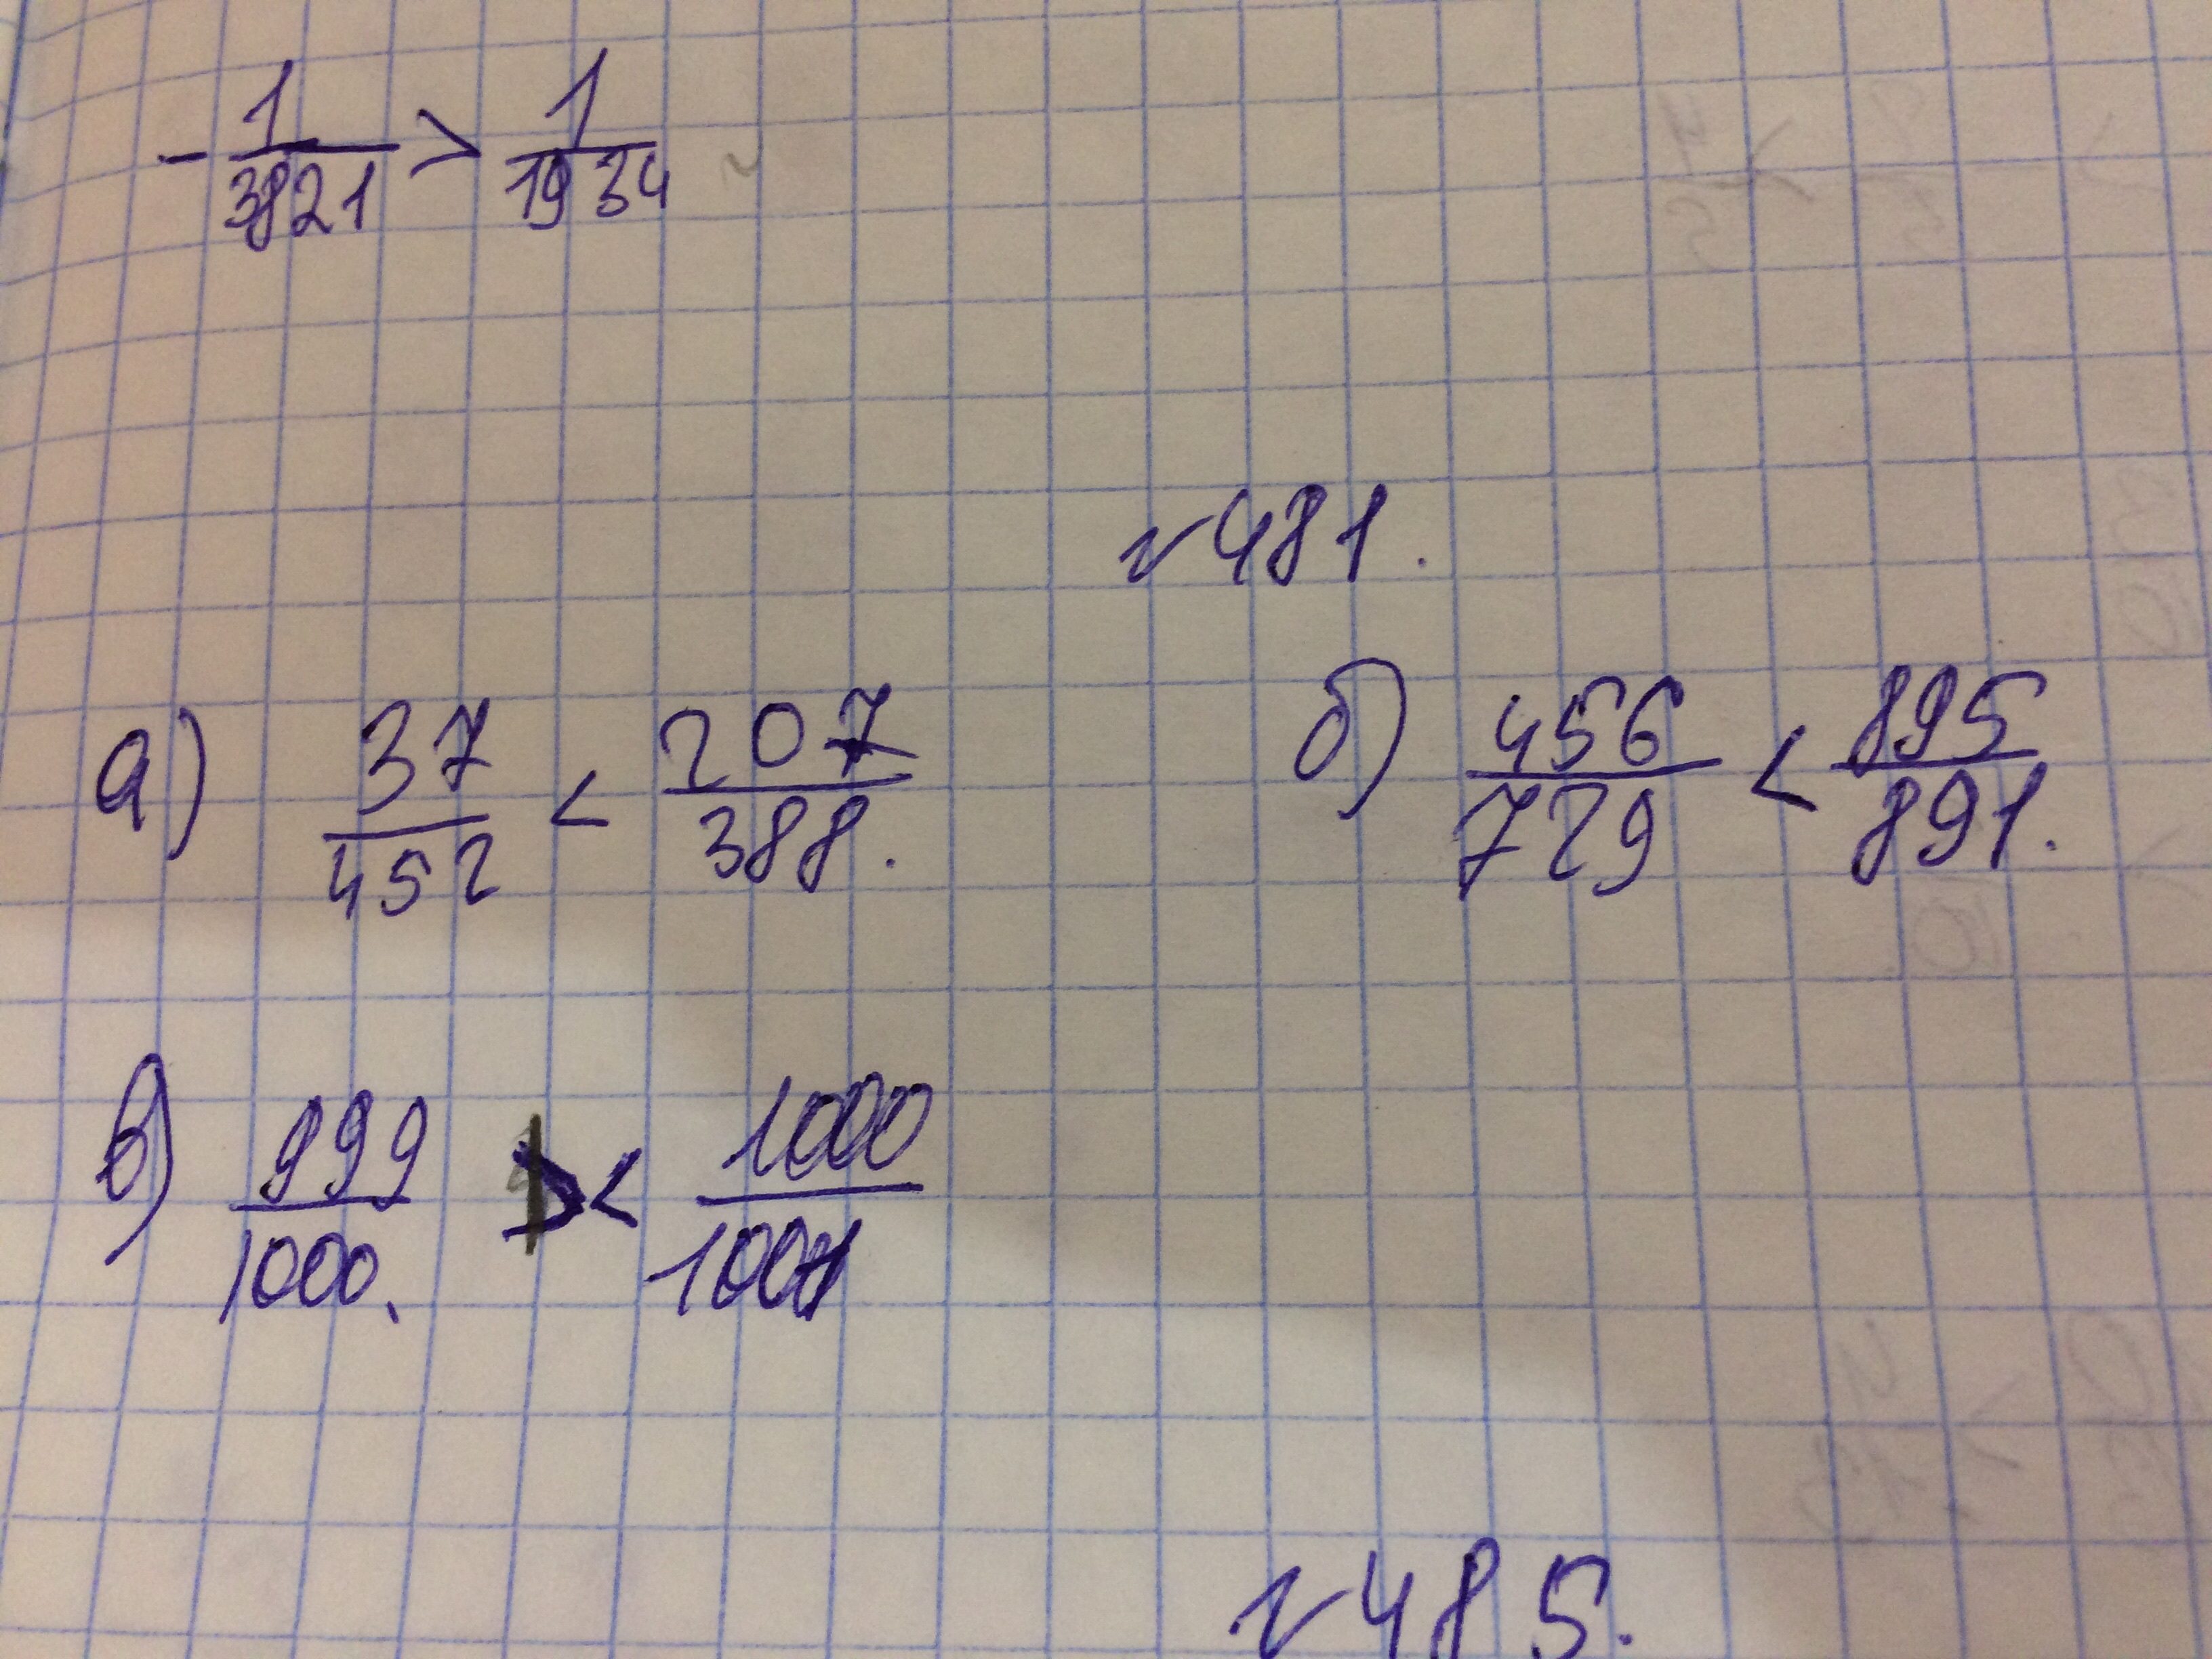 - 1/3821 > 1/1934
№481.
а) 37/452 < 207/388. б) 456/729 < 895/891.
в) 999/1000. < 1000/1001
№485.